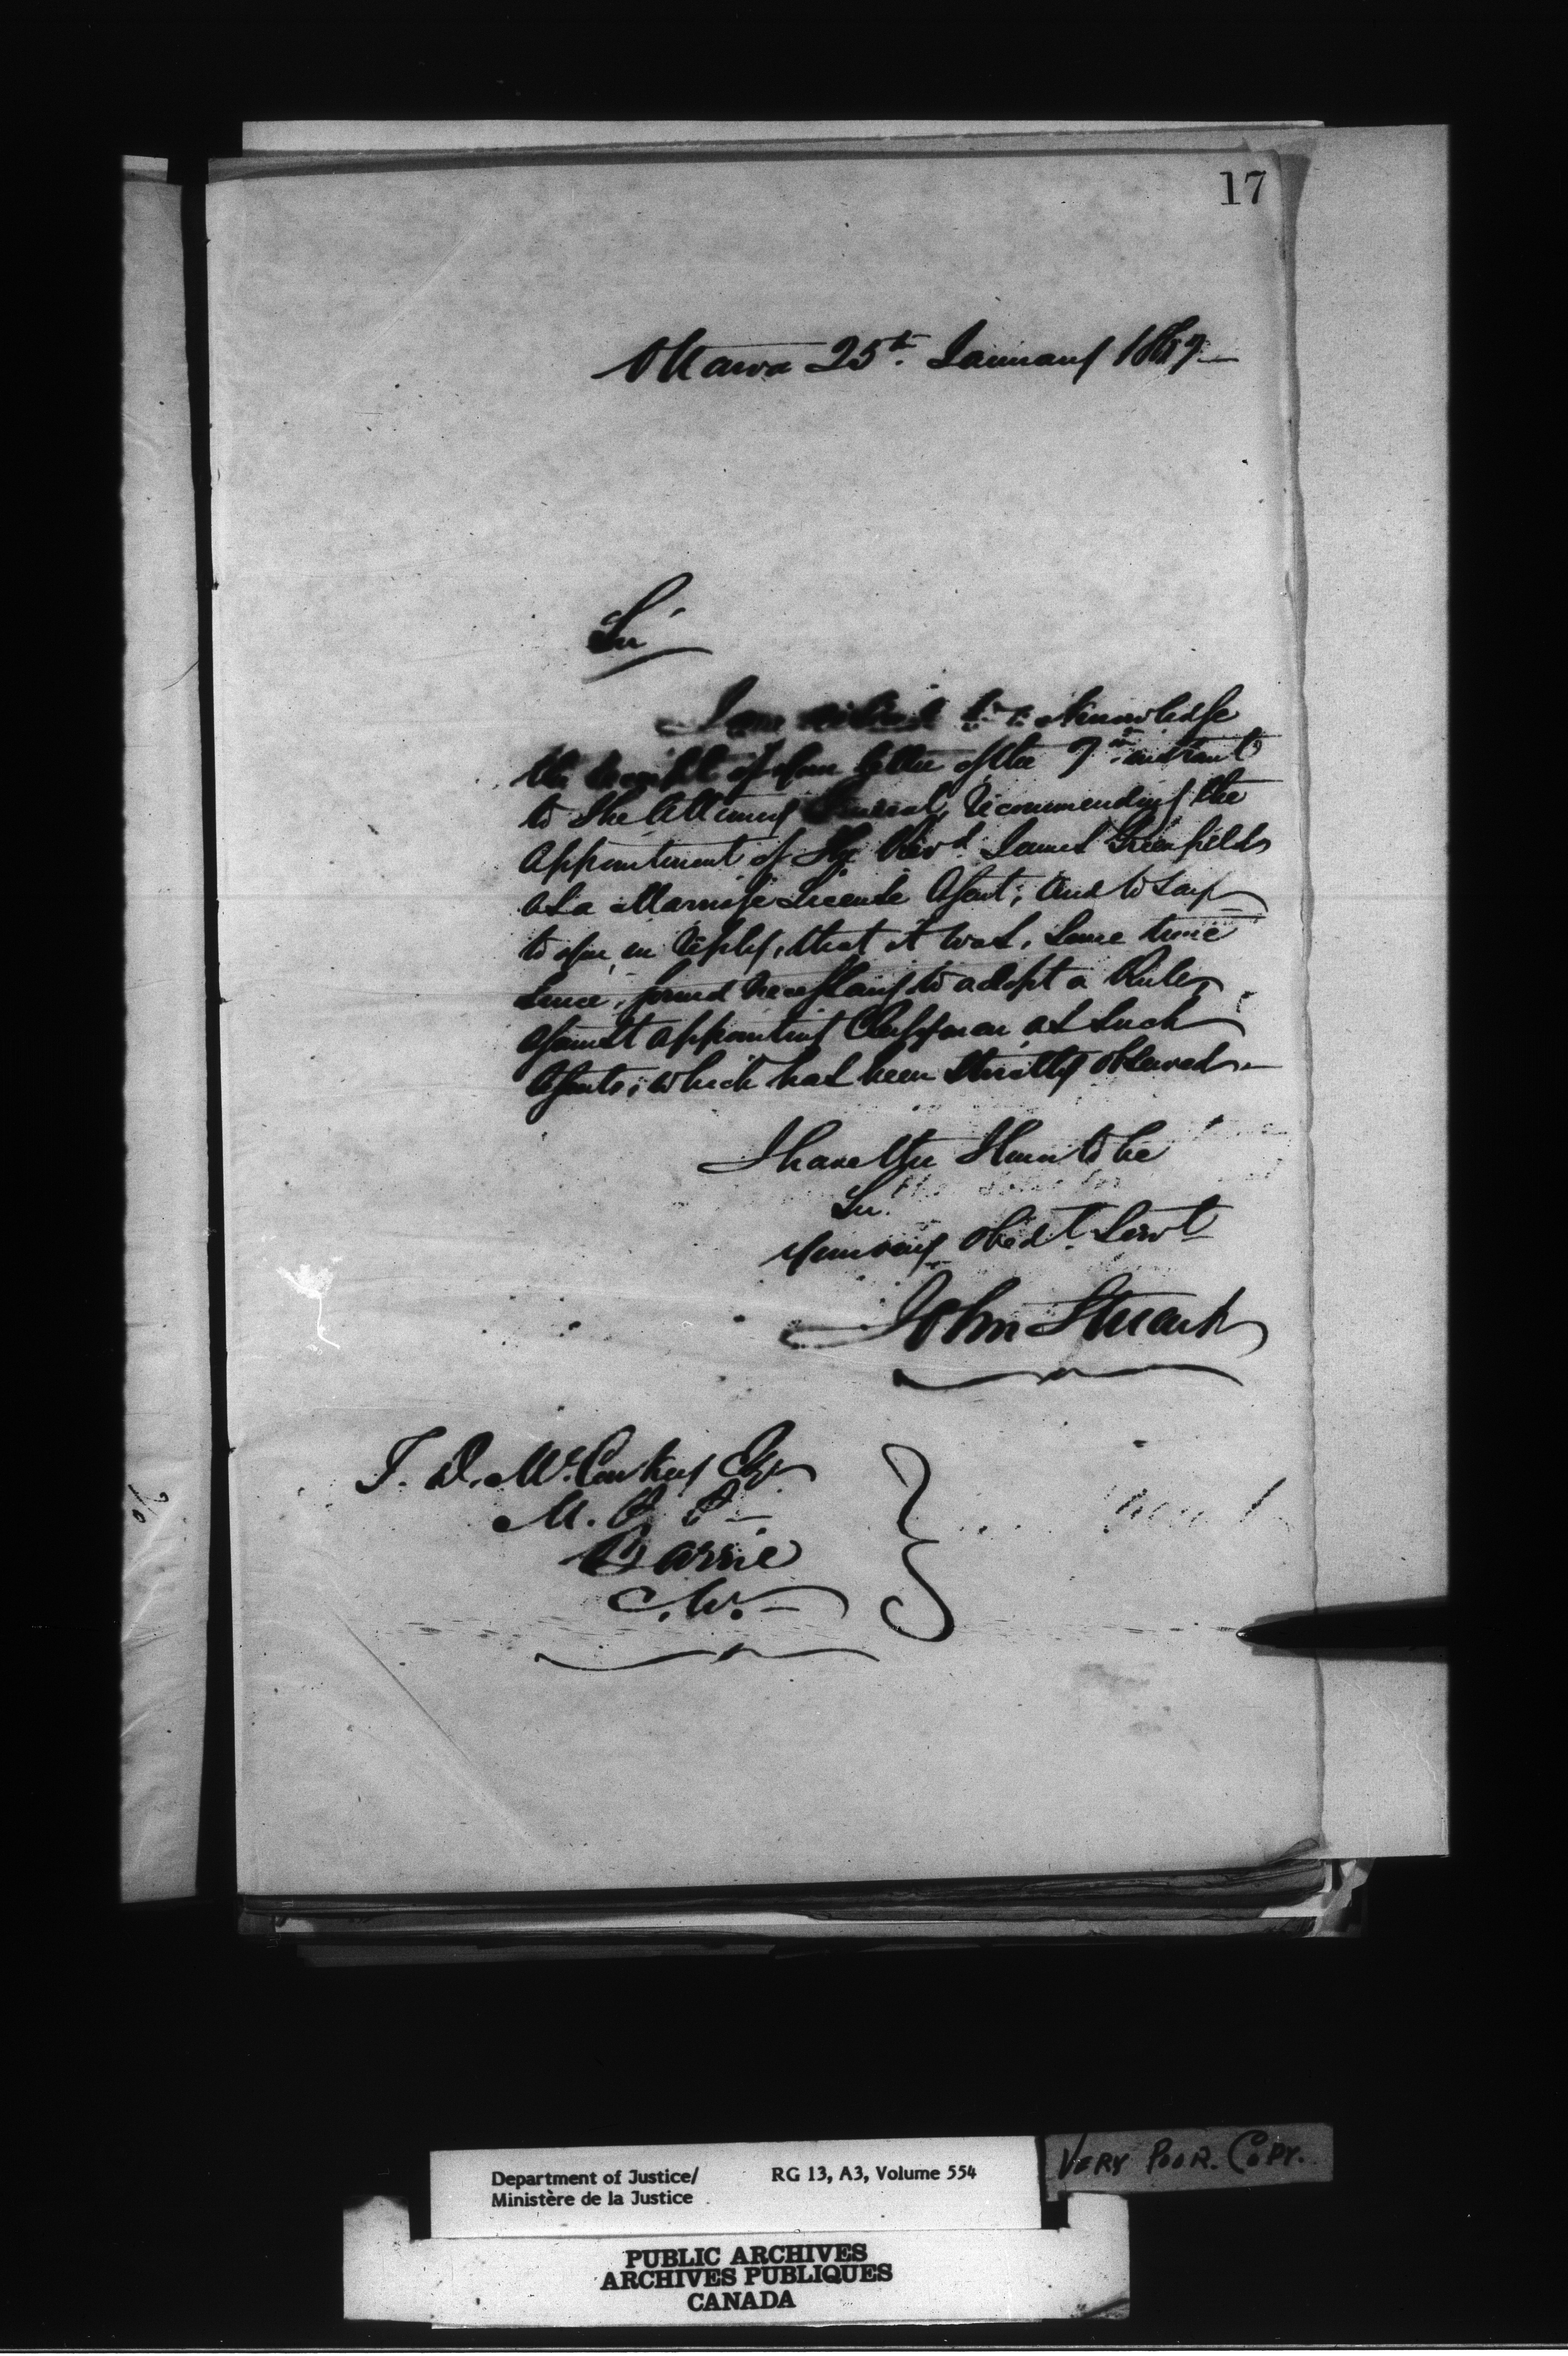 17
Ottawa 25th. January 1867
Sir
I am to acknowledge
the receipt of your letter of the 7th. instant
to the Attorney General, recommending the
appointment of The Revd. James Greenfield
as a Marriage License Agent; and to say
to you, in reply, that it was, some time
since, found necessary to adopt a Rule,
against appointing Clergymen as such
Agents; which has been strictly observed.
I have the Honor to be
Sir
Your very Obedt. Servt
John Stuart
T. D. McConkey Esqr
M. P. P
Barrie
C. W.
Department of Justice/ RG 13, A3, Volume 554
Ministère de la Justice
VERY POOR COPY.
PUBLIC ARCHIVES
ARCHIVES PUBLIQUES
CANADA